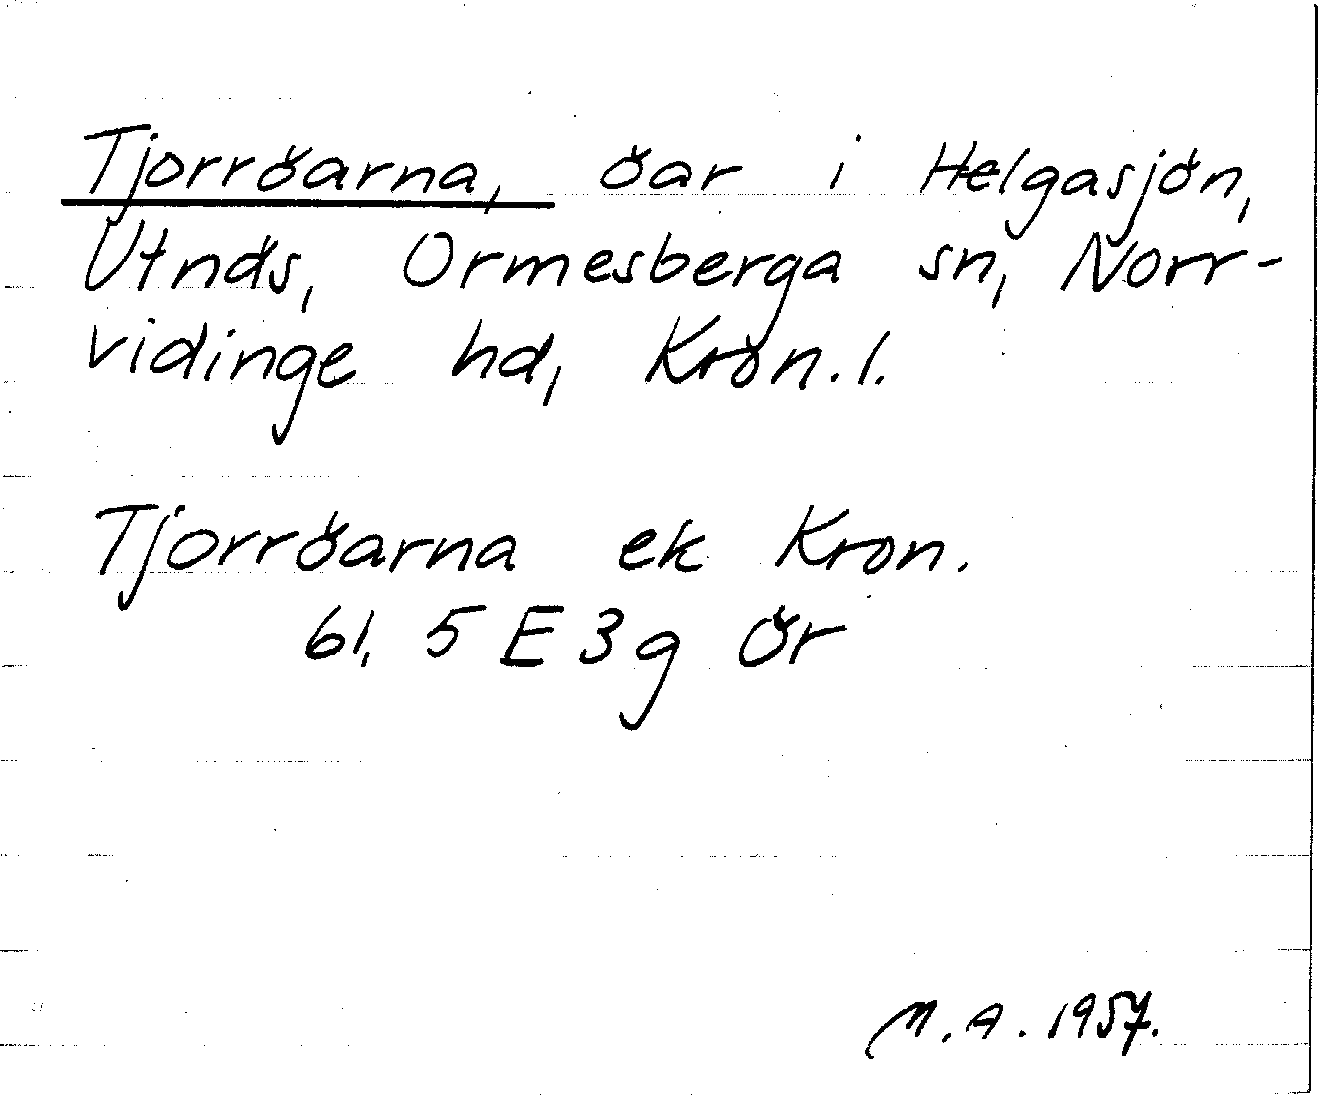 Tjorröarna, öar i Helgasjön,
Utnäs, Ormesberga sn, Norr-
vidinge hd, Kron. l.
Tjorröarna ek Kron.
61, 5 E 3 g ör
M. A. 1957.